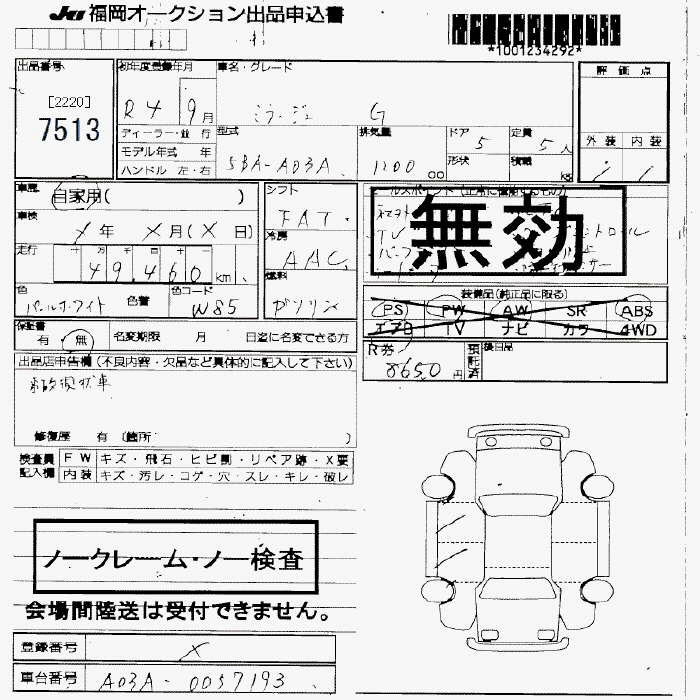 JU 福岡オークション出品申込書
*1001234292*
出品番号
[2220]
7513
初年度登録年月
R4 9月
車名・グレード
ミラージュ G
評価点
外装 内装
ディーラー・並行
モデル年式 年
ハンドル 左・右
型式
5BA-A03A
排気量
1200 cc
ドア 5
形状
定員 5人
積載 kg
車歴
自家用( )
車検
X年 X月(X日)
走行
十 万 千 百 十 一
49,460 km
色
パールホワイト 色替
色コード
W85
シフト
FAT
冷房
AAC
燃料
ガソリン
無効
装備品(純正品に限る)
PS PW AW SR ABS
エアB TV ナビ カワ 4WD
保証書
有 無
名変期限 月 日迄に名変できる方
R券
8650円
預託済
後日品
出品店申告欄(不良内容・欠品など具体的に記入して下さい)
事故現状車
修復歴 有(箇所 )
検査員記入欄
FW キズ・飛石・ヒビ割・リペア跡・X要
内装 キズ・汚レ・コゲ・穴・スレ・キレ・破レ
ノークレーム・ノー検査
会場間陸送は受付できません。
登録番号 X
車台番号 A03A-0057193